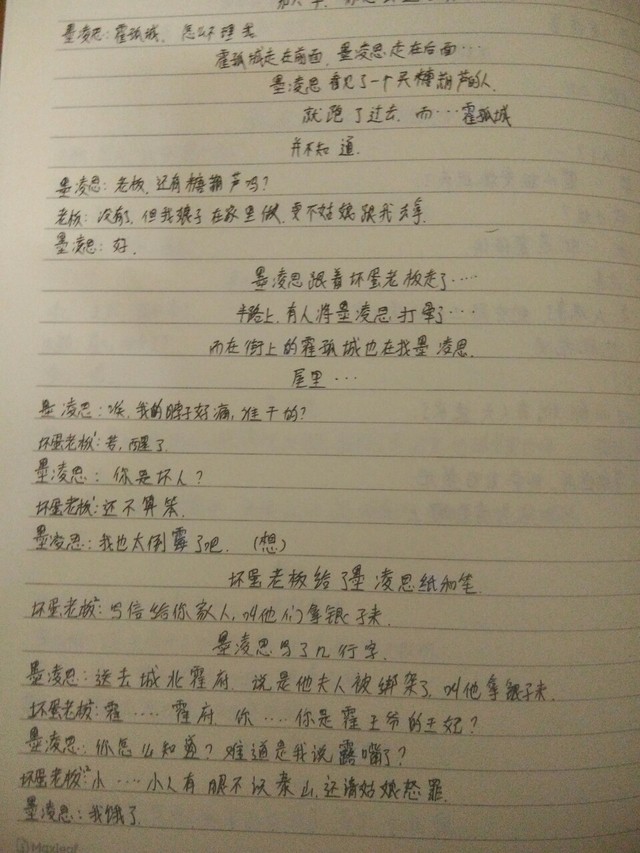 墨凌思：霍孤城，怎么不理我
霍孤城走在前面，墨凌思走在后面…
墨凌思看见了一个买糖葫芦的人，
就跑了过去，而…霍孤城
并不知道.
墨凌思：老板，还有糖葫芦吗？
老板：没有了，但我娘子在家里做，要不姑娘跟我去拿.
墨凌思：好.
墨凌思跟着坏蛋老板走了……
半路上，有人将墨凌思打晕了…
而在街上的霍孤城也在找墨凌思.
屋里…
墨凌思：唉，我的脖子好痛，谁干的？
坏蛋老板：哟，醒了.
墨凌思：你是坏人？
坏蛋老板：还不算笨.
墨凌思：我也太倒霉了吧.（想）
坏蛋老板给了墨凌思纸和笔.
坏蛋老板：写信给你家人，叫他们拿银子来.
墨凌思写了几行字.
墨凌思：送去城北霍府，说是他夫人被绑架了，叫他拿银子来.
坏蛋老板：霍……霍府，你……你是霍王爷的王妃？
墨凌思：你怎么知道？难道是我说露嘴了？
坏蛋老板：小……小人有眼不识泰山，还请姑娘恕罪.
墨凌思：我饿了.